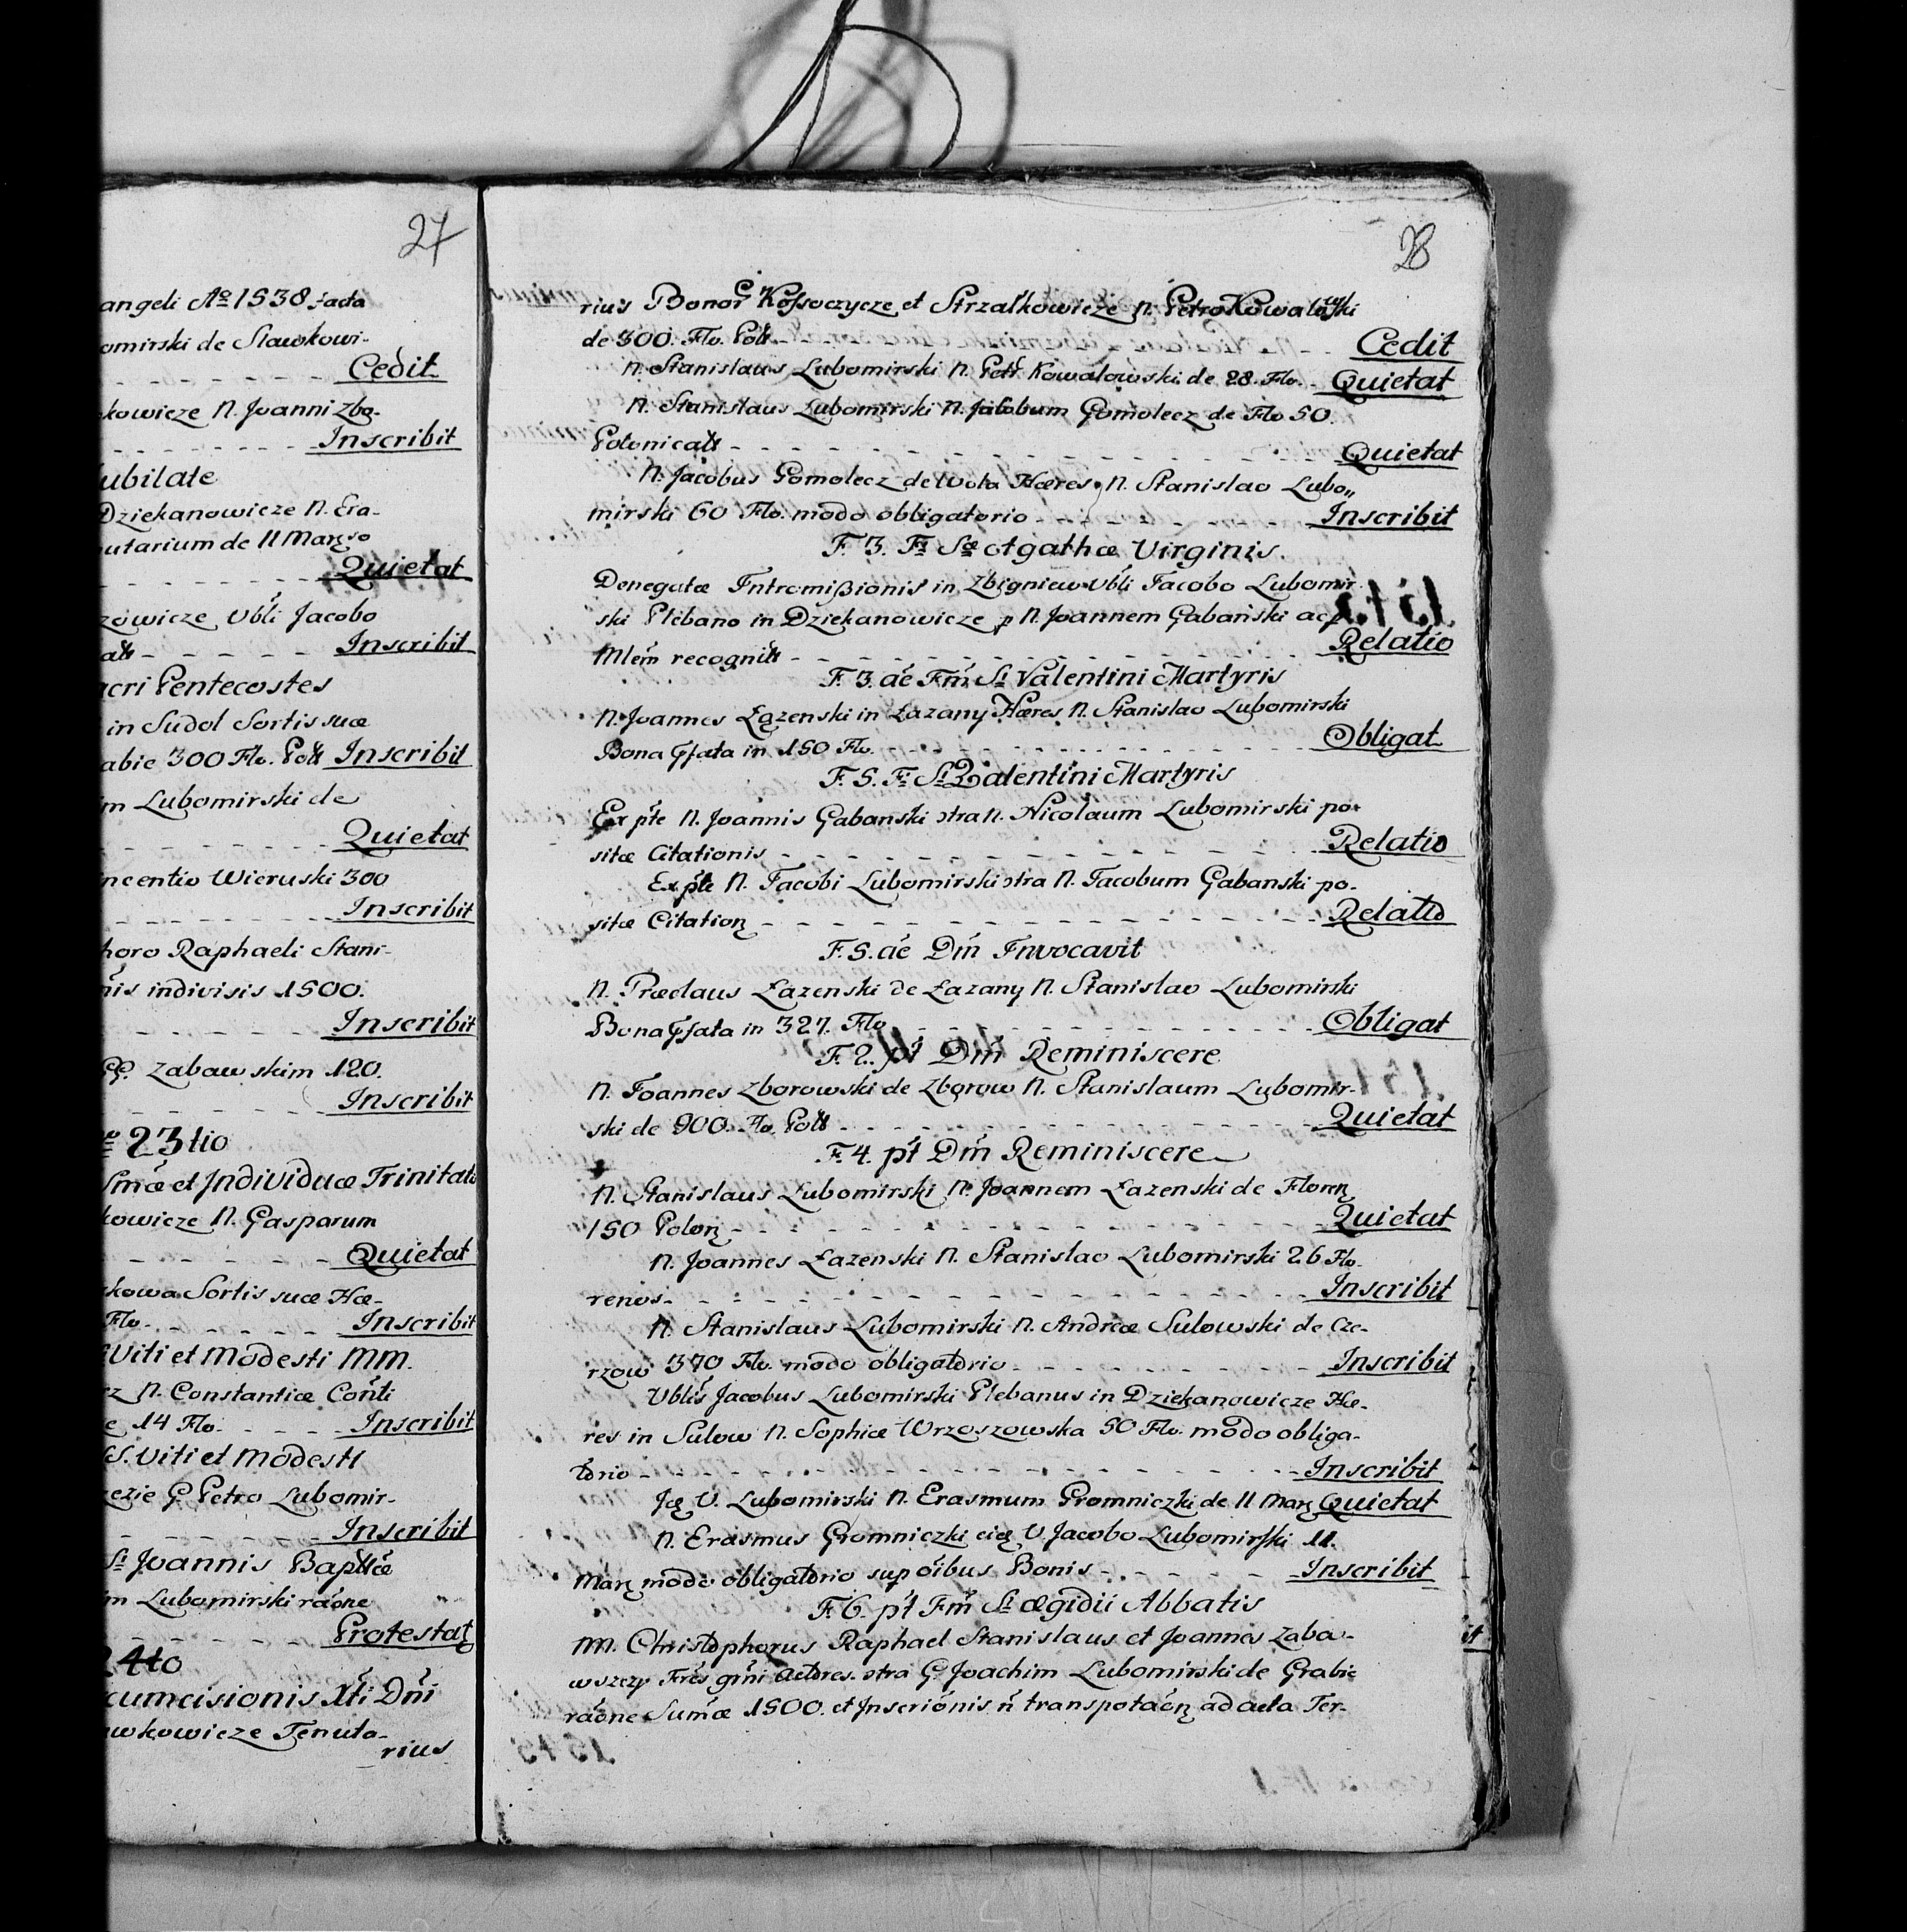 27
angeli Aō 1538 facta
omirski de Slawkowi-
Cedit
kowicze N. Joanni Zbo-
Inscribit
ubilate
Dziekanowicze N. Era-
utarium de 11 Marz
Quietat
zowicze Vbli Jacobo
Inscribit
acri Pentecostes
in Sudol Sortis suæ
abie 300 Flo. Poll Inscribit
m Lubomirski de
Quietat
ncentio Wieruski 300
Inscribit
horo Raphaeli Stani-
nis indivisis 1500.
Inscribit
GG. Zabawskim 120.
Inscribit
23tio
Smæ et Individuæ Trinitatis
kowicze N. Gasparum
Quietat
kowa Sortis suæ Hæ-
Flo. Inscribit
Viti et Modesti MM.
rz N. Constantiæ Conti
e 14 Flo. Inscribit
S. Viti et Modesti
rezie G. Petro Lubomir-
Inscribit
St Joannis Baptæ
m Lubomirski raōne
Protestat
24to
cumcisionis Xti Dni
awkowicze Tenuta-
rius
28
rius Bonor Kossoczycze et Strzałkowicze N. Petro Kowalowski
de 300. Flo. Poll Cedit
N. Stanislaus Lubomirski N. Petr Kowalowski de 28. Flo. Quietat
N. Stanislaus Lubomirski N. Jacobum Gomolecz de Flo 50.
Polonicall Quietat
N. Jacobus Gomolecz de Wola Hæres N. Stanislao Lubo„
mirski 60 Flo. modo obligatorio Inscribit
F. 3. Fī Sæ Agathæ Virginis.
Denegatæ Intromißionis in Zbigniew Vbli Jacobo Lubomir
ski Plebano in Dziekanowicze p N. Joannem Gabański ac p
Mlem recognitt Relatio
F. 3. ae Fm St Valentini Martyris
N. Joannes Łązenski in Łazany Hæres N. Stanislao Lubomirski
Bona Gsata in 150 Flo. Obligat
F. 5. Fī St Valentini Martyris
Ex pte N. Joannis Gabanski ɔtra N. Nicolaum Lubomirski po-
sitæ Citationis Relatio
Ex pte N. Jacobi Lubomirski ɔtra N. Jacobum Gabanski po-
sitæ Citation Relatio
F. 5. ae Dm Invocavit
N. Prædaus Łazenski de Łazany N. Stanislao Lubomirski
Bona Gsata in 327. Flo Obligat
F. 2. pt Dm Reminiscere
N. Joannes Zborowski de Zborow N. Stanislaum Lubomir-
ski de 900. Flo. Poll Quietat
F. 4. pt Dm Reminiscere
N. Stanislaus Lubomirski N. Joannem Łazenski de Floren
150 Polon Quietat
N. Joannes Łazenski N. Stanislao Lubomirski 26 Flo-
renos Inscribit
N. Stanislaus Lubomirski N. Andreæ Sulowski de Cze-
rzow 370 Flo. modo obligatorio Inscribit
Vblis Jacobus Lubomirski Plebanus in Dziekanowicze Hæ-
res in Sulow N. Sophiæ Wrzoszowska 50 Flo. modo obliga-
torio Inscribit
V. Lubomirski N. Erasmum Gromniczki de 11 Marz Quietat
N. Erasmus Gromniczki V. Jacobo Lubomirski 11.
Marz modo obligatorio sup oibus Bonis Inscribit
F. 6. pt Fm St Ægidii Abbatis
NN. Christophorus Raphael Stanislaus et Joannes Zaba-
wszczy Fres gmi Actores. ɔtra G. Joachim Lubomirski de Grabie
raōne Sumæ 1500. et Inscriōnis n transpotaōn ad acta Ter-